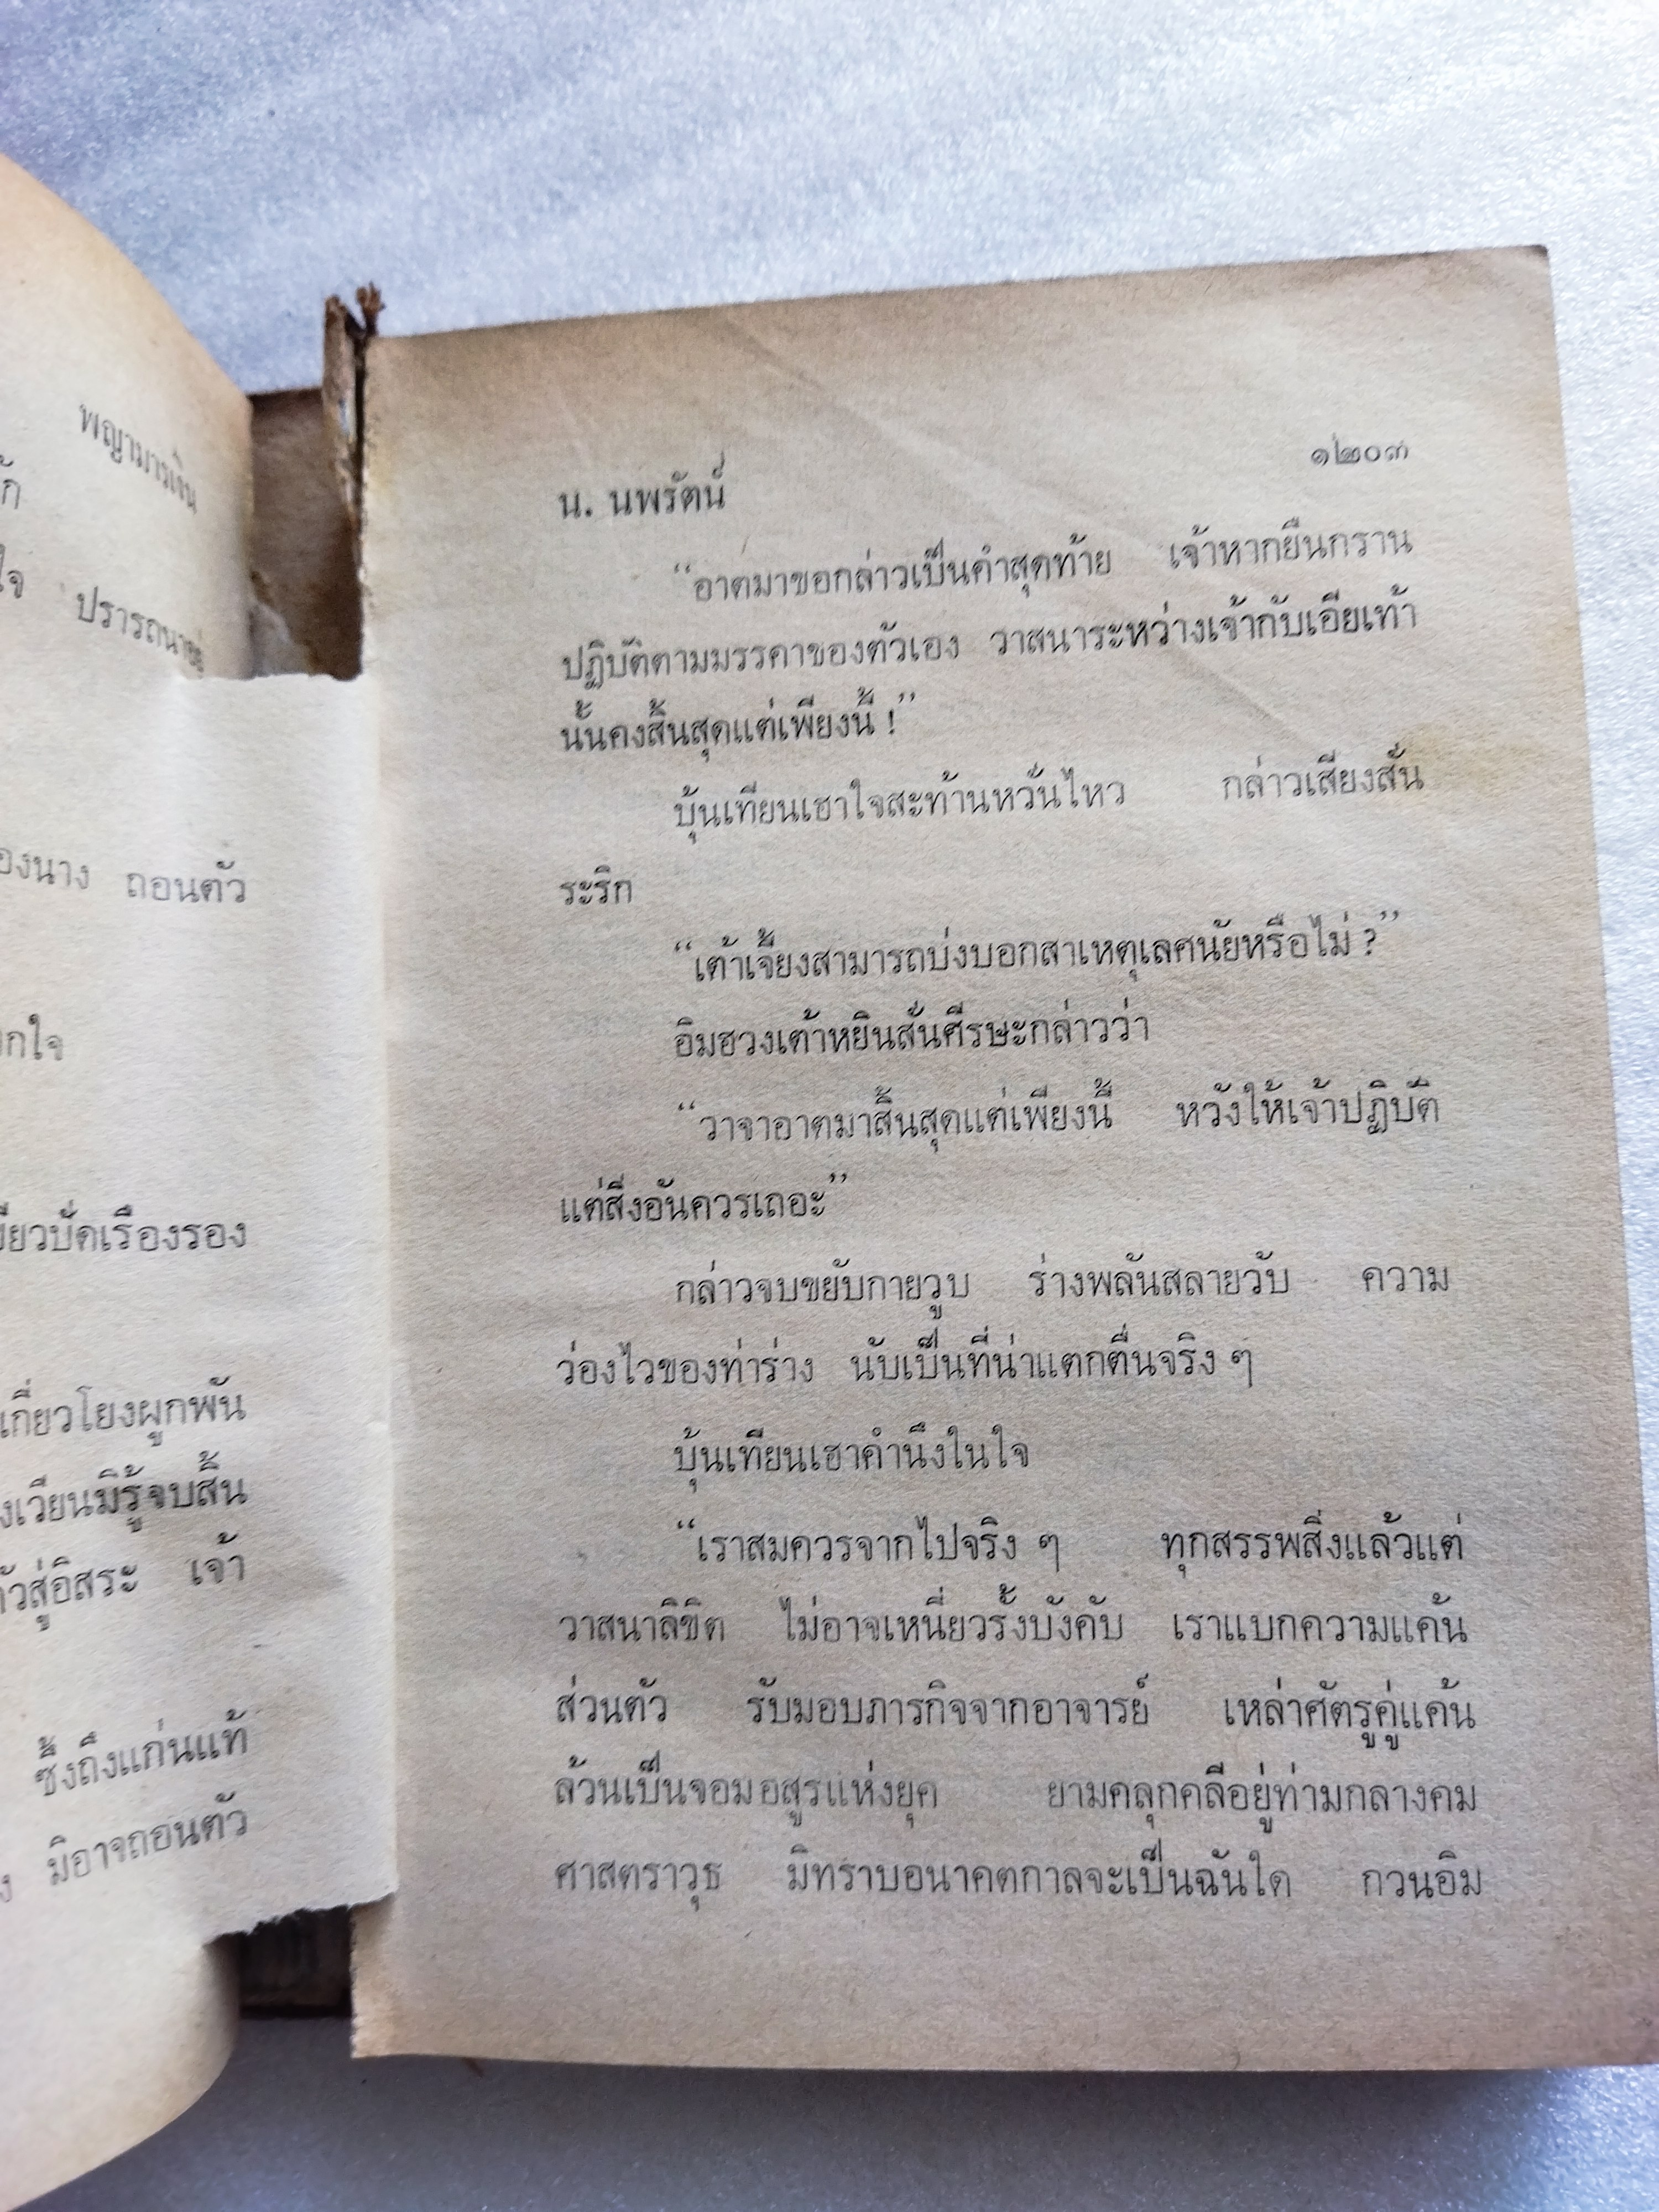 พญามารเงิน
ปรารถนา
องนาง ถอนตัว
กใจ
เรืองรอง
เกี่ยวโยงผูกพัน
งเวียนมิรู้จบสิ้น
ตัวสู่อิสระ เจ้า
ซึ้งถึงแก่นแท้
มิอาจถอนตัว
น. นพรัตน์ ๑๒๐๓
“อาตมาขอกล่าวเป็นคำสุดท้าย เจ้าหากยืนกราน
ปฏิบัติตามมรรคาของตัวเอง วาสนาระหว่างเจ้ากับเอียเท้า
นั้นคงสิ้นสุดแต่เพียงนี้ !”
บุ้นเทียนเฮาใจสะท้านหวั่นไหว กล่าวเสียงสั่น
ระริก
“เต้าเจี้ยงสามารถบ่งบอกสาเหตุเลศนัยหรือไม่ ?”
อิมฮวงเต้าหยินสั่นศีรษะกล่าวว่า
“วาจาอาตมาสิ้นสุดแต่เพียงนี้ หวังให้เจ้าปฏิบัติ
แต่สิ่งอันควรเถอะ”
กล่าวจบขยับกายวูบ ร่างพลันสลายวับ ความ
ว่องไวของท่าร่าง นับเป็นที่น่าแตกตื่นจริง ๆ
บุ้นเทียนเฮาคำนึงในใจ
“เราสมควรจากไปจริง ๆ ทุกสรรพสิ่งแล้วแต่
วาสนาลิขิต ไม่อาจเหนี่ยวรั้งบังคับ เราแบกความแค้น
ส่วนตัว รับมอบภารกิจจากอาจารย์ เหล่าศัตรูคู่แค้น
ล้วนเป็นจอมอสูรแห่งยุค ยามคลุกคลีอยู่ท่ามกลางคม
ศาสตราวุธ มิทราบอนาคตกาลจะเป็นฉันใด กวนอิม